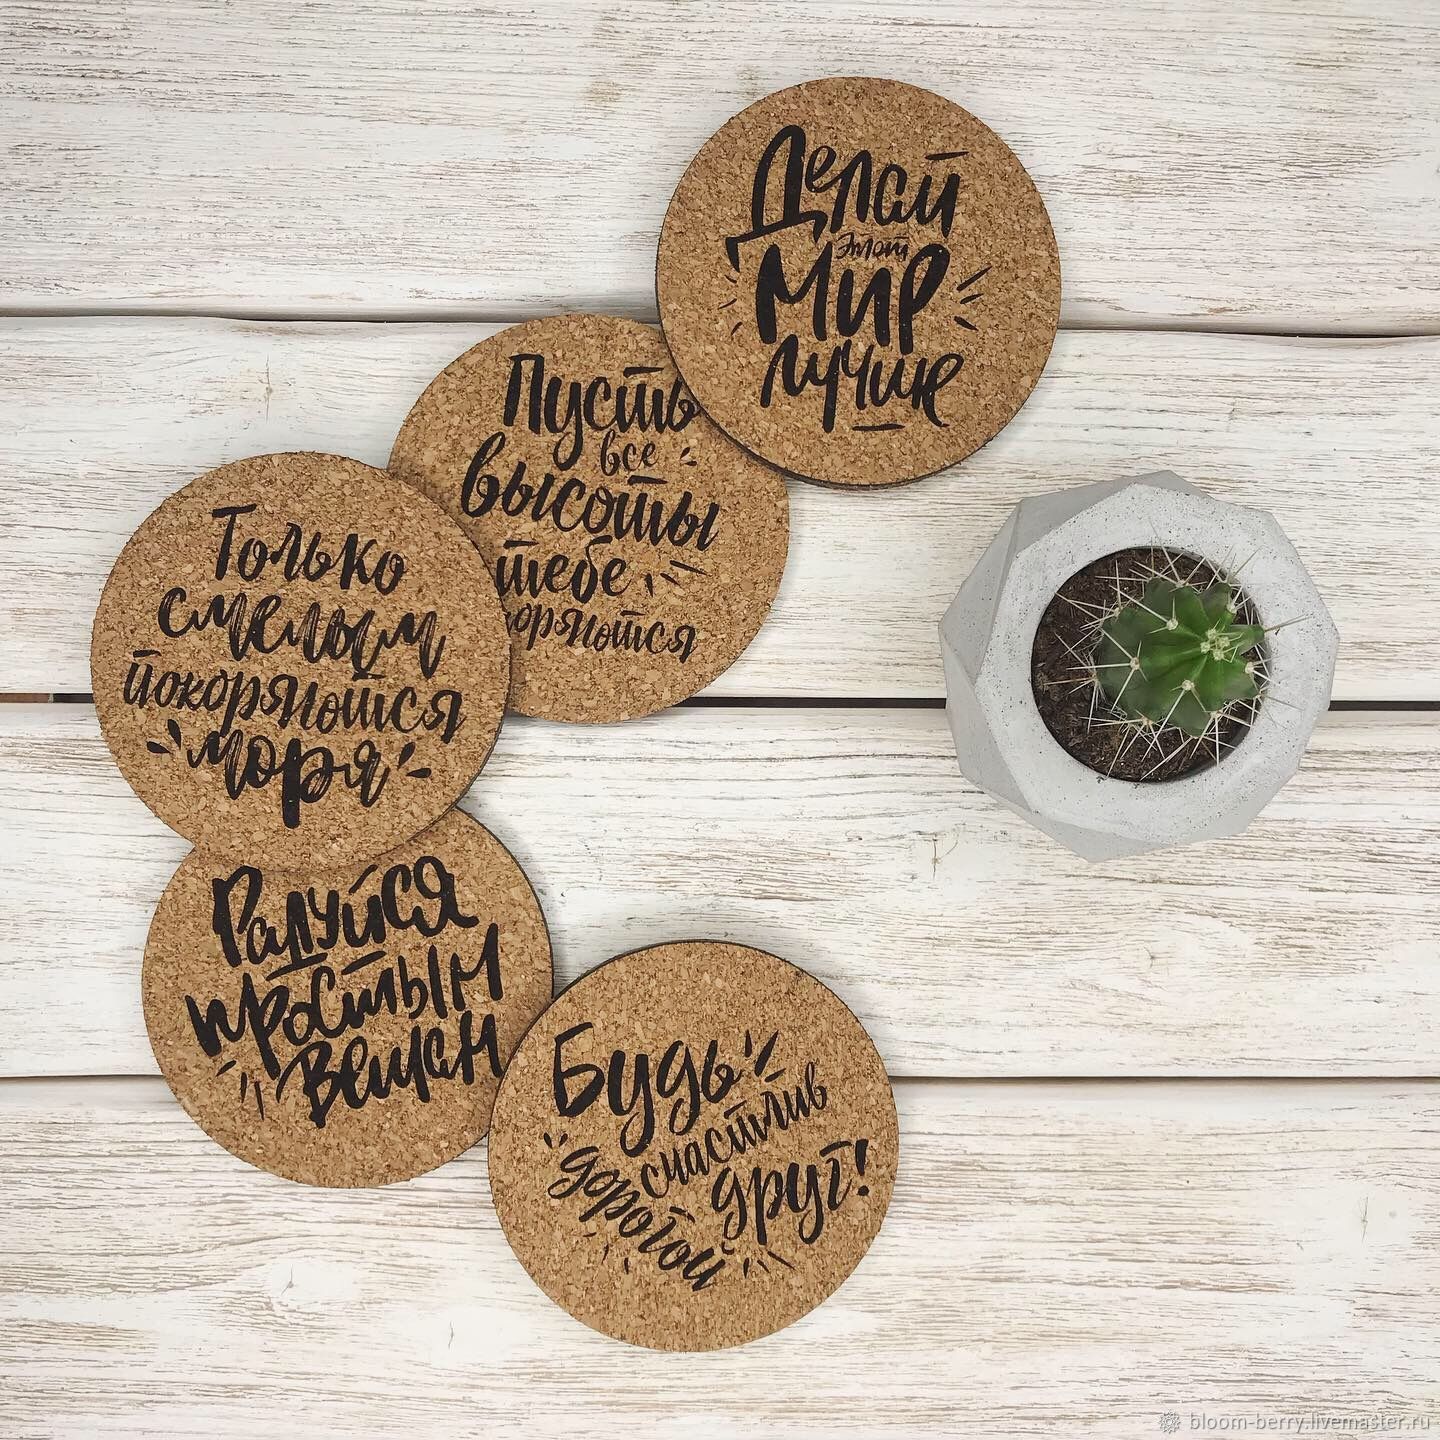 Делай
этот
Мир
лучше
Пусть
все
высоты
тебе
коряются
Только
смелым
покоряются
моря
Радуйся
простым
вещам
Будь
счастлив
дорогой
друг!
bloom-berry.livemaster.ru